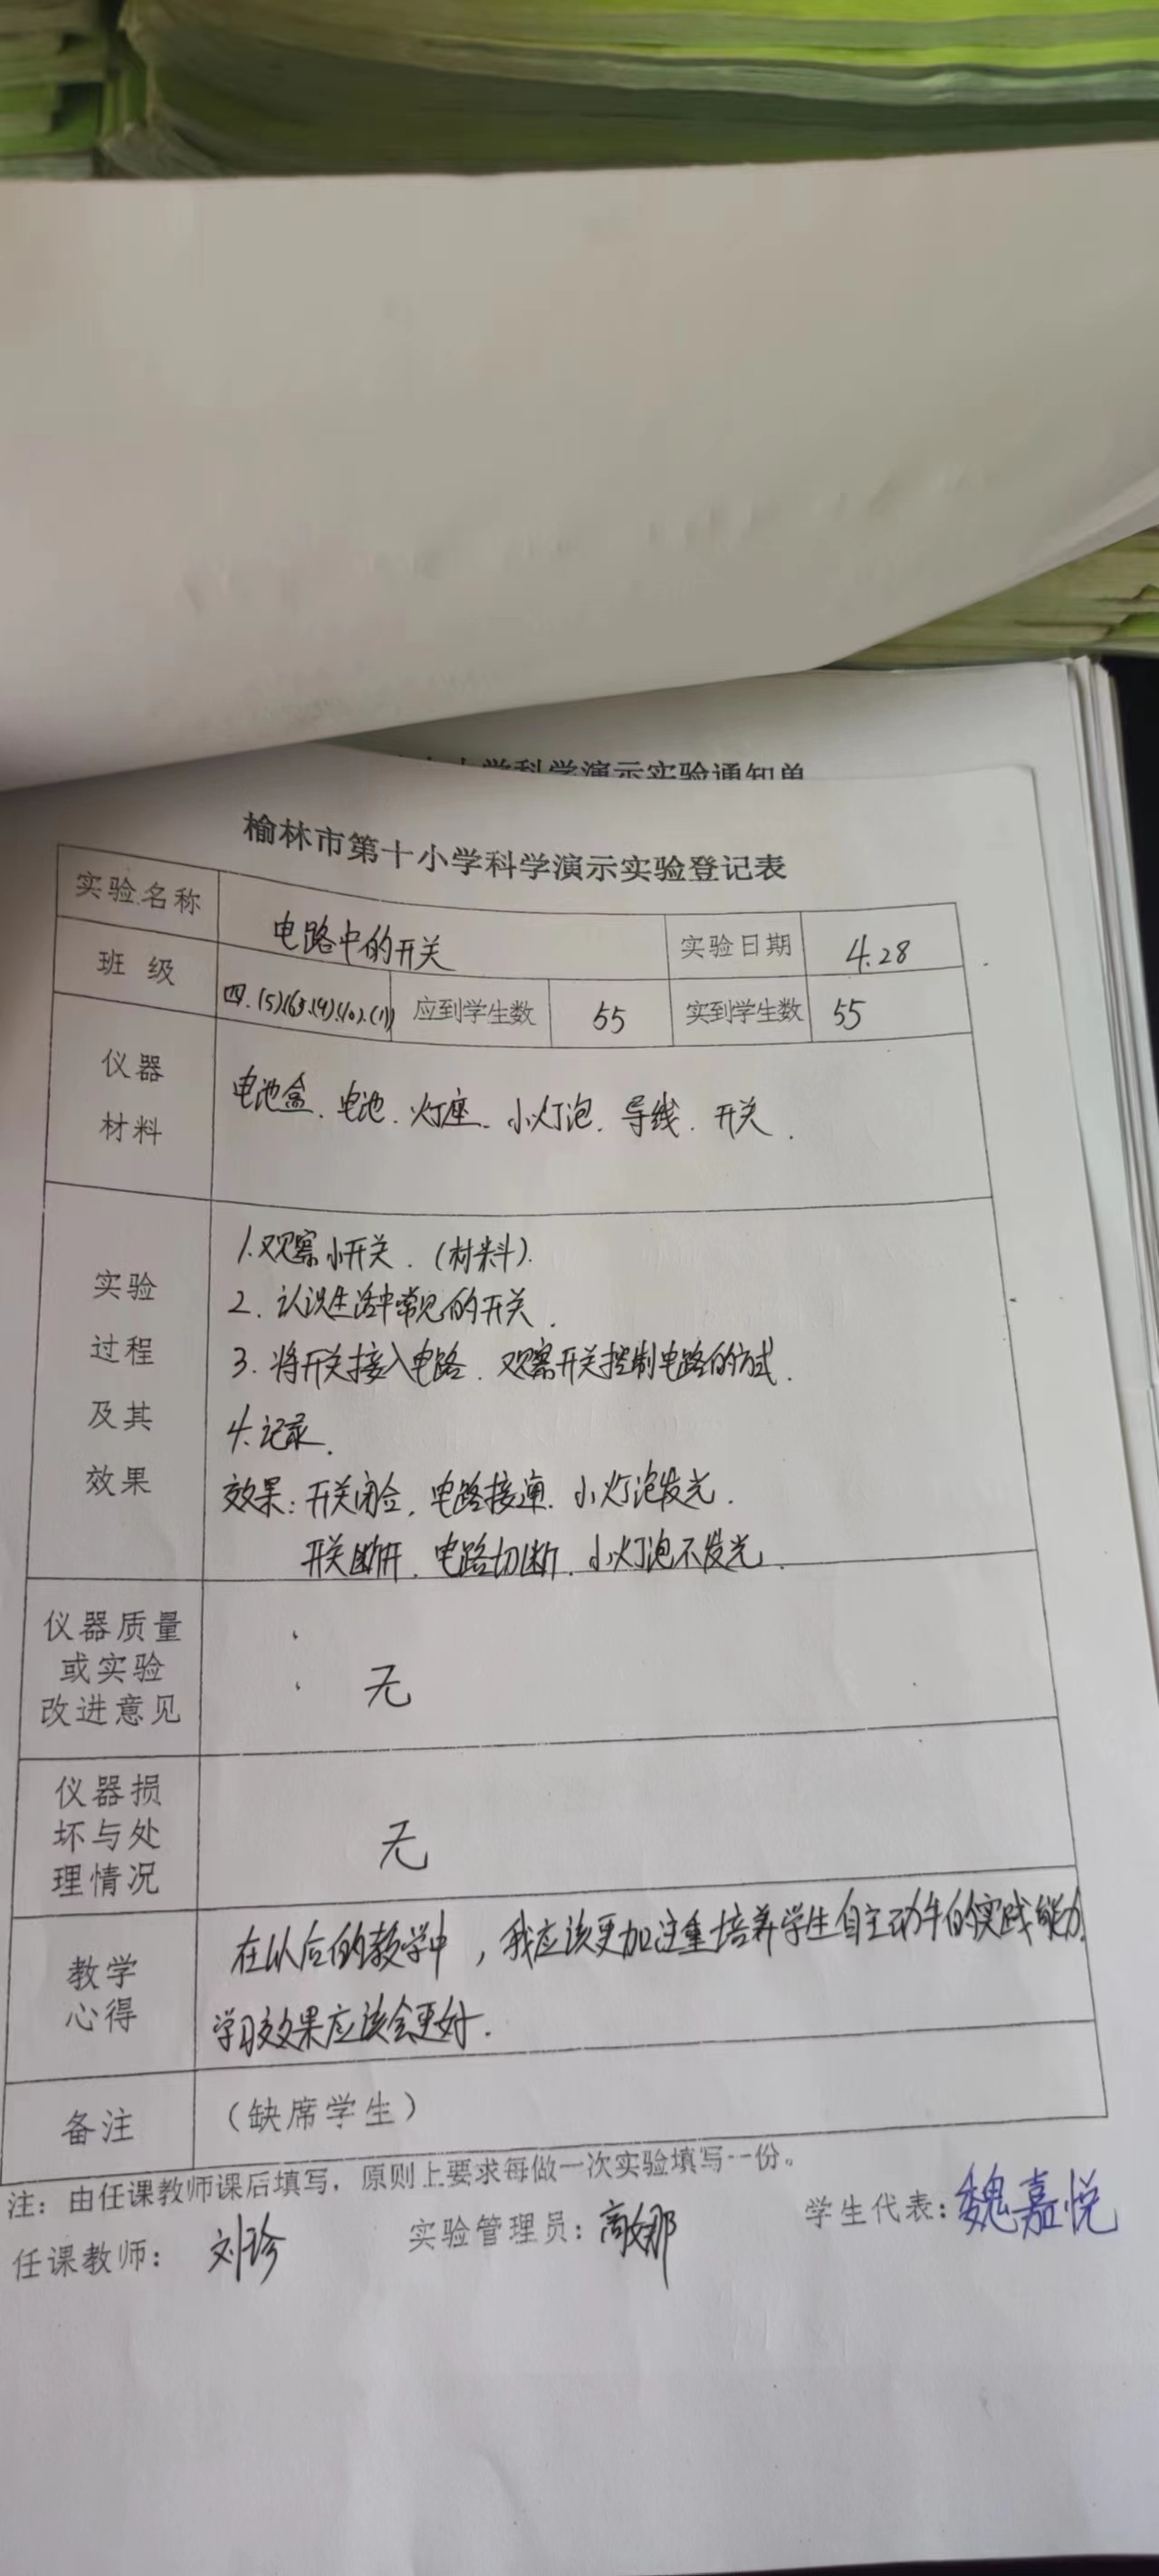 小学科学演示实验通知单
榆林市第十小学科学演示实验登记表
实验名称 电路中的开关 实验日期 4.28
班级 四.(5)(6).(9).(10).(11) 应到学生数 55 实到学生数 55
仪器
材料
电池盒.电池.灯座.小灯泡.导线.开关.
实验
过程
及其
效果
1.观察小开关.(材料).
2.认识生活中常见的开关.
3.将开关接入电路.观察开关控制电路的方式.
4.记录.
效果:开关闭合,电路接通.小灯泡发光.
开关断开.电路切断.小灯泡不发光.
仪器质量
或实验
改进意见
无
仪器损
坏与处
理情况
无
教学
心得
在以后的教学中,我应该更加注重培养学生自主动手的实践能力.
学习效果应该会更好.
备注 (缺席学生)
注:由任课教师课后填写,原则上要求每做一次实验填写一份。
任课教师: 刘珍 实验管理员: 高娜 学生代表: 魏嘉悦